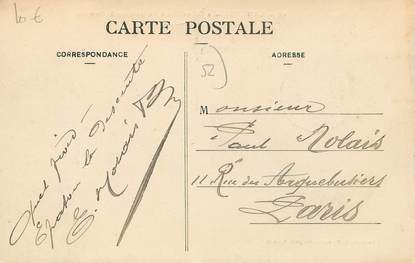 10 €
CARTE POSTALE
CORRESPONDANCE
ADRESSE
52
Quel froid
la descente
E. Molais
Monsieur
Paul Molais
11 Rue des Arquebusiers
Paris